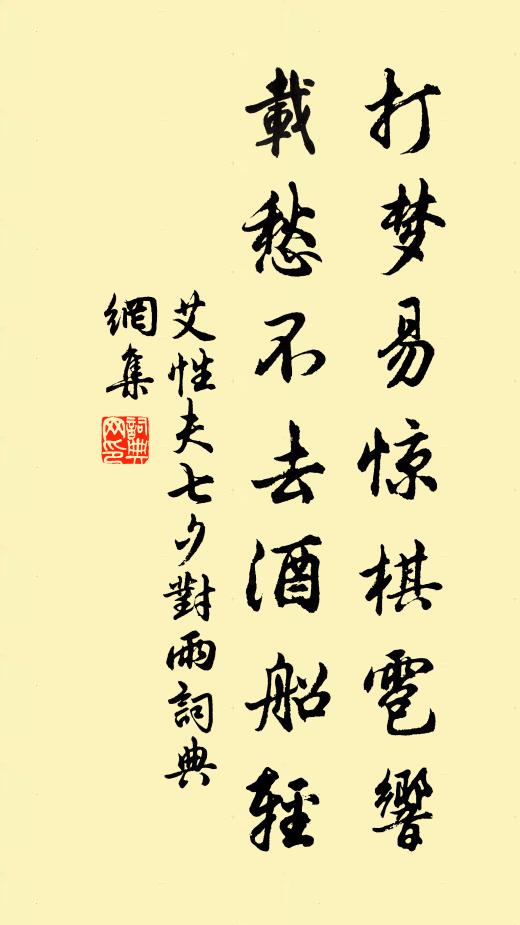 打梦易惊棋雹響
載愁不去酒船輕
艾性夫七夕對雨詞典
網集
詞典
网印